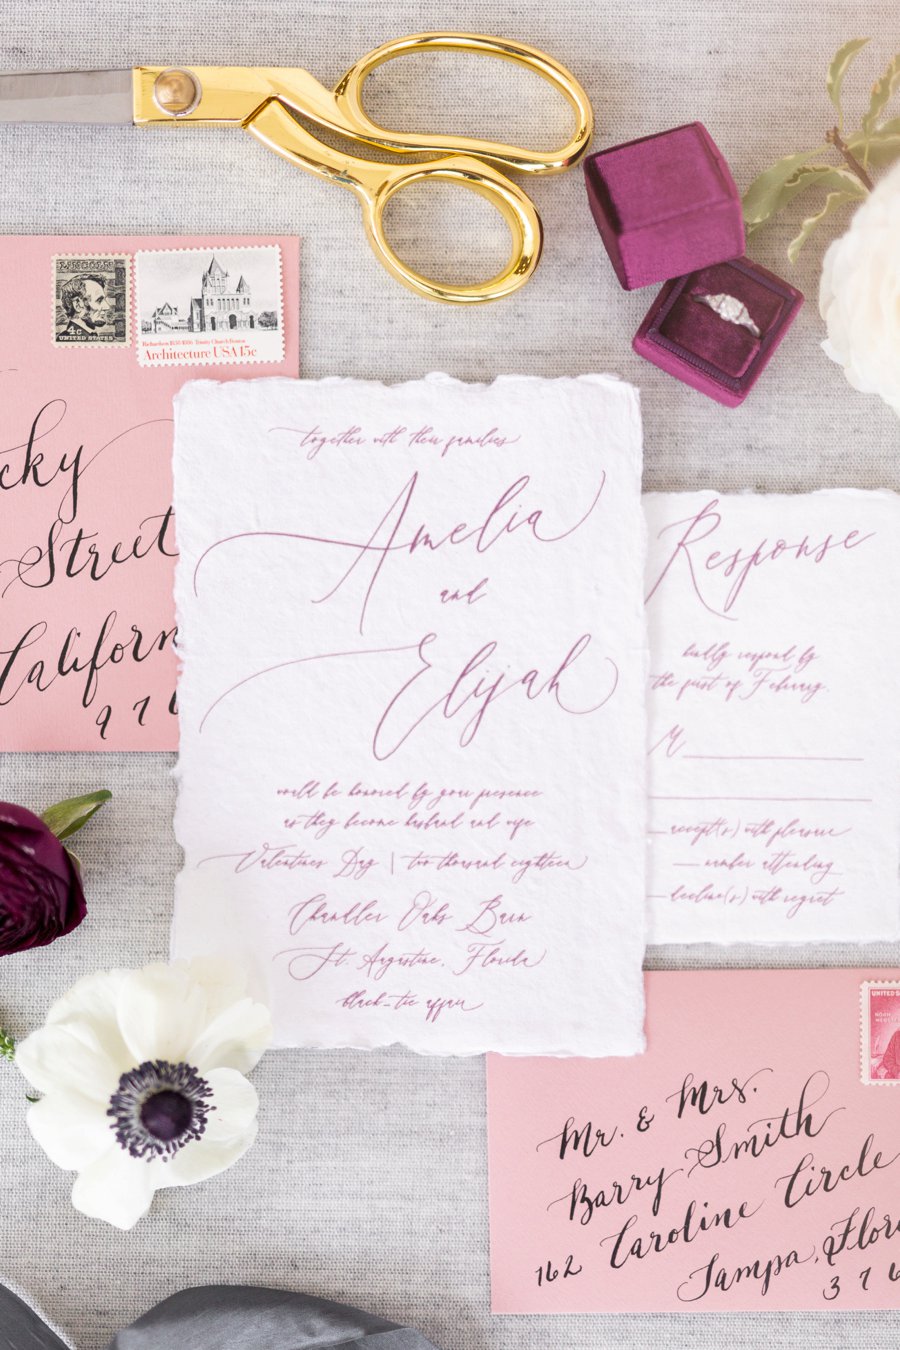 LINCOLN
4c
UNITED STATES
Richardson 1838-1886 Trinity Church Boston
Architecture USA 15c
cky
Street
Californ
9 7
together with their families
Amelia
and
Elijah
would be honored by your presence
as they become husband and wife
Valentines Day | two thousand eighteen
Chandler Oaks Barn
St. Augustine, Florida
black-tie affair
Response
kindly respond by
the first of February
M
accept(s) with pleasure
number attending
decline(s) with regret
UNITED S
NOAH
WEBST
Mr. & Mrs.
Barry Smith
162 Caroline Circle
Tampa, Flor
3 7 6